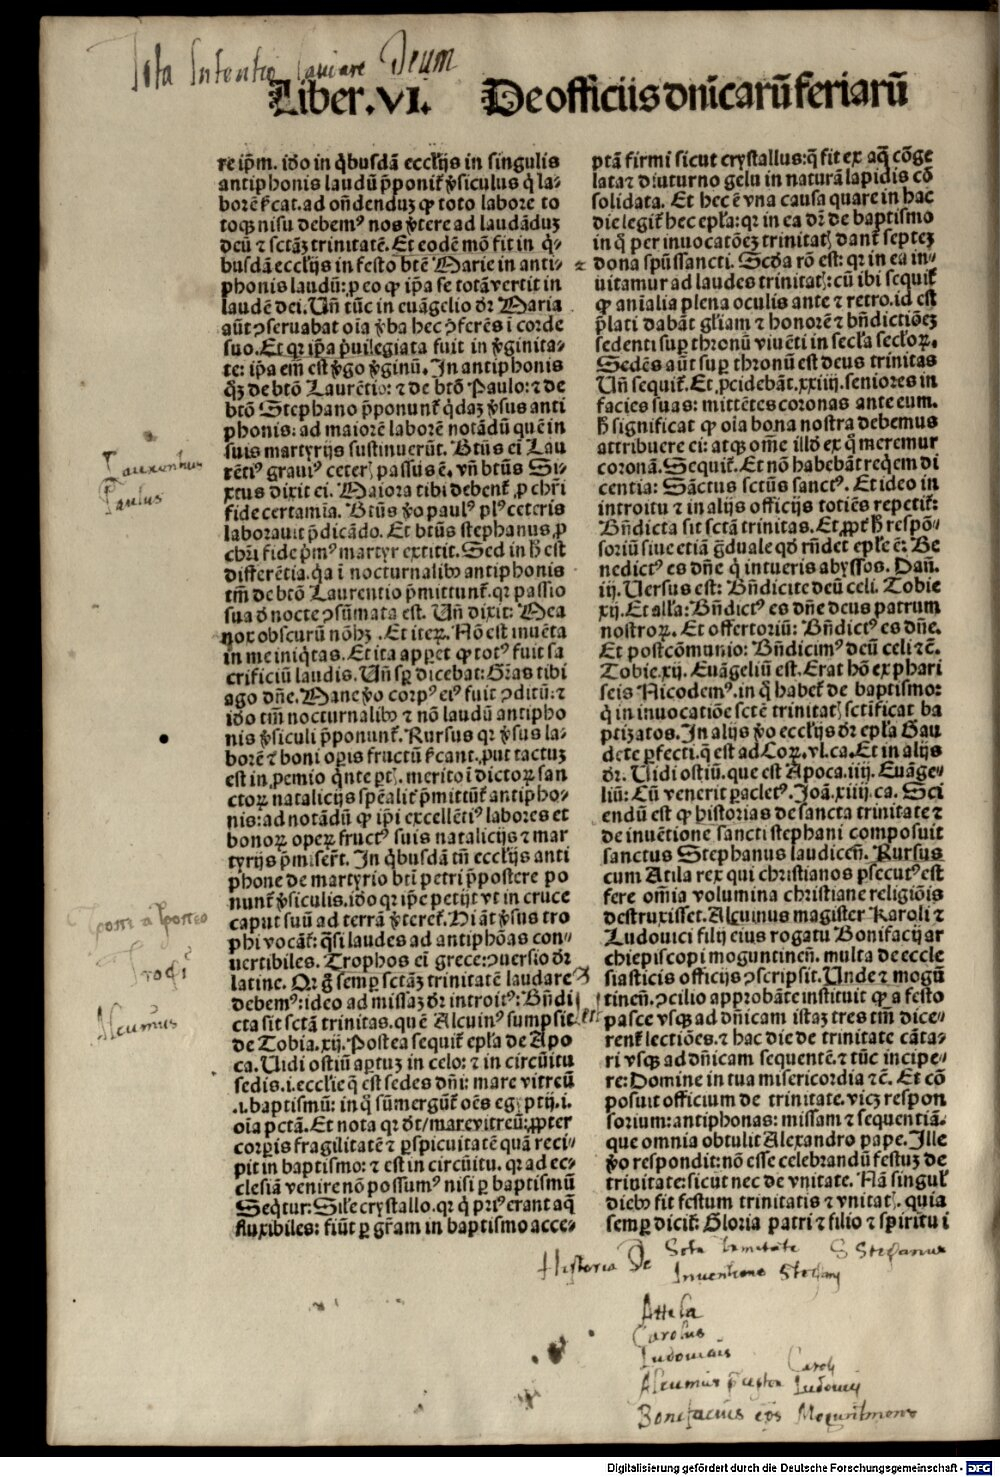 Tota Intentio laudare Deum
Liber.VI. De officiis dn̄icarū feriarū
re ip̄m. iđo in q̇busdā eccl̄ijs in singulis
antiphonis laudū p̄ponit̄ v̓siculus q̇ la-
borē s̓cat. ad on̄denduꝫ ꝙ toto labore to
toqꝫ nisu debemꝰ nos v̓tere ad laudāduꝫ
deū ⁊ sctāꝫ trinitatē. Et eodē mō fit in q̇-
busdā eccl̄ijs in festo btē Marie in anti-
phonis laudū: ꝓ eo ꝙ ip̄a se totā vertit in
laudē dei. Un̄ tūc in euāgelio dr̄ Maria
aūt ↄseruabat oīa v̓ba hec ↄferēs ī corde
suo. Et qr ip̄a p̓uilegiata fuit in v̓ginita-
te: ip̄a em̄ est v̓go v̓ginū. In antiphonis
q̇ꝫ de btō Laurētio: ⁊ de btō Paulo: ⁊ de
btō Stephano p̄ponunt̄ q̇daꝫ v̓sus anti
phonis: ad maiorē laborē notādū quē in
suis martyrijs sustinuerūt. Btūs ei̓ Lau
rētiꝰ grauiꝰ ceteri̓ passus ē. vn̄ btūs Si-
xtus dixit ei. Maiora tibi debent̄ ꝓ chr̄i
fide certamīa. Btūs v̓o paulꝰ plꝰ ceteris
laborauit p̄dicādo. Et btūs stephanus ꝓ
chr̄i fide p̓mꝰ martyr extitit. Sed in h̄ est
differētia. q̇a ī nocturnalibꝰ antiphonis
tm̄ de btō Laurentio p̄mittunt̄. qr passio
sua đ nocte ↄsūmata est. Un̄ dixit: Mea
nox obscurū nō hꝫ. Et iteꝝ. Nō est inuēta
in me iniq̇tas. Et ita appet ꝙ totꝰ fuit sa
crificiū laudis. Un̄ sꝑ dicebat: Gr̄as tibi
ago dn̄e. Mane v̓o corpꝰ eiꝰ fuit ↄditū: ⁊
iđo tm̄ nocturnalibꝰ ⁊ nō laudū antipho
nis v̓siculi p̄ponunt̄. Rursus qr v̓sus la-
borē ⁊ boni oꝑis fructū s̓cant. ꝓut tactuꝫ
est in ꝓemio q̇nte ꝑti̓. merito ī dictoꝝ san
ctoꝝ natalicijs spēalit̓ p̄mittūt̄ antipho-
nis: ad notādū ꝙ ip̄i excellētiꝰ labores et
bonoꝝ opeꝝ fructꝰ suis natalicijs ⁊ mar
tyrijs p̄miser̄t. In q̇busdā tn̄ eccl̄ijs anti
phone de martyrio bti̓ petri p̄postere po
nunt̄ v̓siculis. iđo qr ip̄e petijt vt in cruce
caput suū ad terrā v̓teret̄. Hi āt v̓sus tro
phi vocāt̄: q̇si laudes ad antiphōas con-
uertibiles. Trophos ei̓ grece: ↄuersio dr̄
latine. Qr g̊ semꝑ sctāꝫ trinitatē laudare
debemꝰ: ideo ad missaꝫ dr̄ introitꝰ: Bn̄di
cta sit sctā trinitas. quē Alcuinꝰ sumpsit
de Tobia. xij. Postea sequit̄ epl̄a de Apo
ca. Uidi ostiū aꝑtuꝫ in celo: ⁊ in circūitu
sedis .i. eccl̄ie q̄ est sedes dn̄i: mare vitreū
.i. baptismū: in q̊ sūmergūt̄ oēs egyptij .i.
oīa pctā. Et nota qr dr̄/ mare vitreū: ꝓpter
corꝑis fragilitatē ⁊ ꝑspicuitatē quā reci-
pit in baptismo: ⁊ est in circūitu. qr ad ec-
clesiā venire nō possumꝰ nisi ꝑ baptismū
Seq̇tur: Sil̄e crystallo. qr q̇ priꝰ erant aq̄
fluxibiles: fiūt ꝑ gr̄am in baptismo acce-
ptā firmi sicut crystallus: q̄ fit ex aq̄ cōge
lata ⁊ diuturno gelu in naturā lapidis cō
solidata. Et hec ē vna causa quare in hac
die legit̄ hec epl̄a: qr in ea dr̄ de baptismo
in q̊ per inuocatōeꝫ trinitati̓ dant̄ septeꝫ
dona spūssancti. Scđa rō est: qr in ea in-
uitamur ad laudes trinitati̓: cū ibi sequit̄
ꝙ anīalia plena oculis ante ⁊ retro. id est
p̄lati dabāt gl̄iam ⁊ honorē ⁊ bn̄dictiōeꝫ
sedenti suꝑ thronū viuēti in secl̄a secloꝝ.
Sedēs aūt suꝑ thronū est deus trinitas
Un̄ sequit̄. Et ꝓcidebāt. xxiiij. seniores in
facies suas: mittētes coronas ante eum.
h̄ significat ꝙ oīa bona nostra debemus
attribuere ei: atqꝫ om̄e illđ ex q̊ meremur
coronā. Sequit̄. Et nō habebāt reqēm di
centia: Sāctus sctūs sanctꝰ. Et ideo in
introitu ⁊ in alijs officijs totiēs repetit̄:
Bn̄dicta sit sctā trinitas. Et ꝓpt̓ h̄ respō-
soriū siue etiā g̊duale qđ rn̄det epl̄e ē: Be
nedictꝰ es dn̄e q̇ intueris abyssos. Dan̄.
iij. Uersus est: Bn̄dicite deū celi. Tobie
xij. Et all̄a: Bn̄dictꝰ es dn̄e deus patrum
nostroꝝ. Et offertoriū: Bn̄dictꝰ es dn̄e.
Et postcōmunio: Bn̄dicimꝰ deū celi ⁊c̄.
Tobie. xij. Euāgeliū est. Erat hō ex phari
seis Nicodemꝰ. in q̊ habet̄ de baptismo:
q̇ in inuocatiōe sctē trinitati̓ sctīficat ba
ptizatos. In alijs v̓o eccl̄ijs dr̄ epl̄a Gau
dete ꝑfecti. q̄ est ad Coꝝ. vl. ca. Et in alijs
dr̄. Uidi ostiū. que est Apoca. iiij. Euāge-
liū: Cū venerit ꝑacletꝰ. Joā. xiiij. ca. Sci
endū est ꝙ historias de sancta trinitate ⁊
de inuētione sancti stephani composuit
sanctus Stephanus laudiceñ. Rursus
cum Atila rex qui christianos ꝑsecutꝰ est
fere om̄ia volumina christiane religiōis
destruxisset. Alcuinus magister Karoli ⁊
Ludouici filij eius rogatu Bonifacij ar
chiepiscopi moguntineñ. multa de eccle
siasticis officijs ↄscripsit. Unde ⁊ mogū
tineñ. ↄcilio approbāte instituit ꝙ a festo
pasce vsqꝫ ad dn̄icam istaꝫ tres tm̄ dice-
rent̄ lectiōes. ⁊ hac die de trinitate cāta-
ri vsqꝫ ad dn̄icam sequentē. ⁊ tūc incipe-
re: Domine in tua misericordia ⁊c̄. Et cō
posuit officium de trinitate. vicꝫ respon
sorium: antiphonas: missam ⁊ sequentiā.
que omnia obtulit Alexandro pape. Ille
v̓o respondit: nō esse celebrandū festuꝫ de
trinitate: sicut nec de vnitate. Nā singul̓
diebꝰ fit festum trinitatis ⁊ vnitati̓. quia
semꝑ dicit̄: Gloria patri ⁊ filio ⁊ spiritu i
Paulus
Alcuinus
Historia De Scta trinitate S Stefanus
Inuentione Stefani
Attela
Carolus
Ludouicus
Caroli
Ludouici
Bonefacius ep̄s Moguntinens
Digitalisierung gefördert durch die Deutsche Forschungsgemeinschaft - DFG